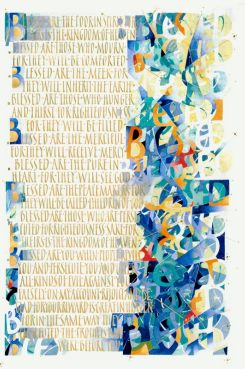 BLESSED ARE THE POOR IN SPIRIT FOR THEIRS
IS THE KINGDOM OF HEAVEN
BLESSED ARE THOSE WHO MOURN
FOR THEY WILL BE COMFORTED
BLESSED ARE THE MEEK FOR
THEY WILL INHERIT THE EARTH
BLESSED ARE THOSE WHO HUNGER
AND THIRST FOR RIGHTEOUSNESS
FOR THEY WILL BE FILLED
BLESSED ARE THE MERCIFUL
FOR THEY WILL RECEIVE MERCY
BLESSED ARE THE PURE IN
HEART FOR THEY WILL SEE GOD
BLESSED ARE THE PEACEMAKERS FOR
THEY WILL BE CALLED CHILDREN OF GOD
BLESSED ARE THOSE WHO ARE PERSE
CUTED FOR RIGHTEOUSNESS SAKE FOR
THEIRS IS THE KINGDOM OF HEAVEN
BLESSED ARE YOU WHEN PEOPLE REVILE
YOU AND PERSECUTE YOU AND UTTER
ALL KINDS OF EVIL AGAINST YOU
FALSELY ON MY ACCOUNT REJOICE AND BE
GLAD FOR YOUR REWARD IS GREAT IN HEAVEN
FOR IN THE SAME WAY THEY
PERSECUTED THE PROPHETS WHO
WERE BEFORE YOU